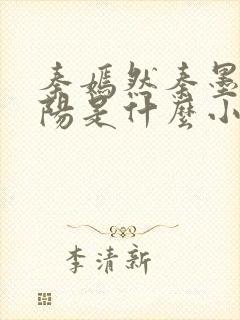 秦嫣然秦墨
陽是什麼小
李清新